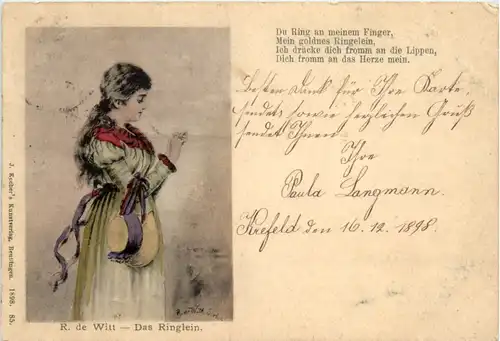 Du Ring an meinem Finger,
Mein goldnes Ringelein,
Ich drücke dich fromm an die Lippen,
Dich fromm an das Herze mein.
Besten Dank für Ihre Karte
sendet sowie herzlichen Gruß
sendet Ihnen
Ihre
Paula Langmann.
Krefeld den 16.12.1898.
J. Kocher's Kunstverlag, Reutlingen. 1898. 85.
R. de Witt — Das Ringlein.